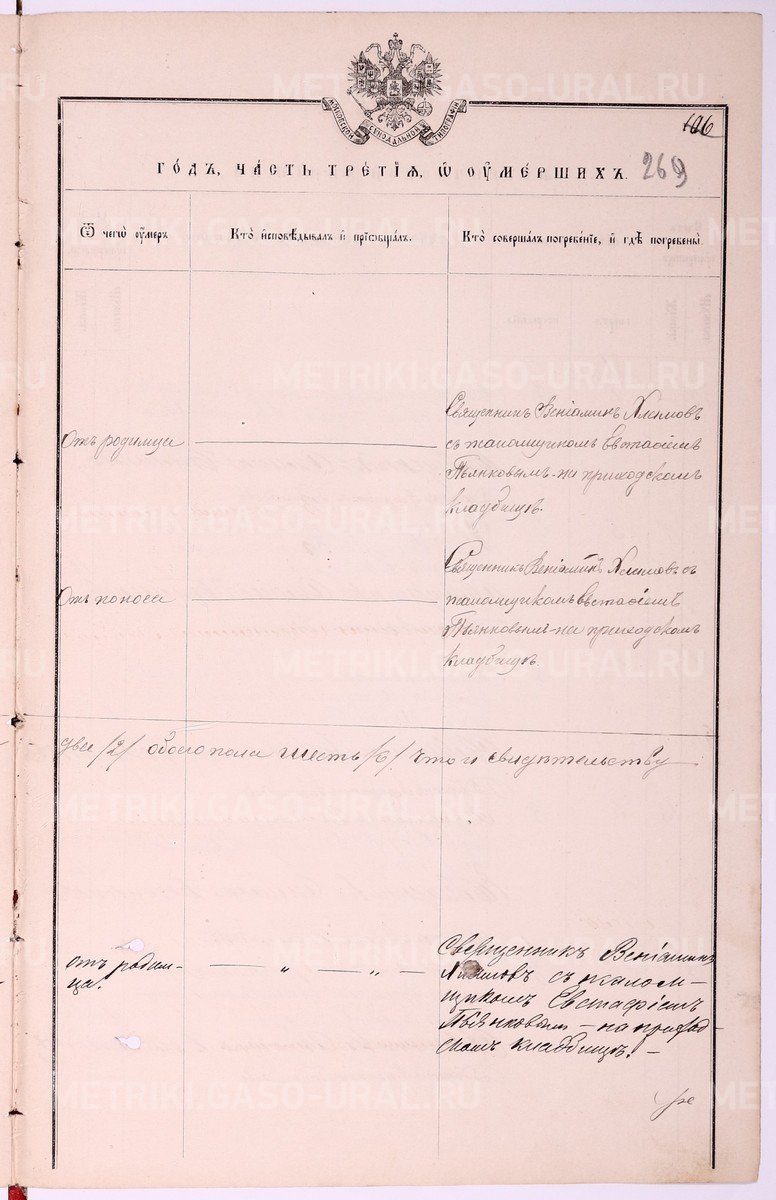 МОСКОВСКОЙ СѴНОДАЛЬНОЙ ТИПОГРАФІИ
106
ГОДЪ, ЧАСТЬ ТРЕТІЯ, Ѡ ОУМЕРШИХЪ.
269
Ѿ чегѡ оумеръ
Кто исповѣдывалъ и пріобщалъ.
Кто совершалъ погребеніе, и гдѣ погребены
Отъ родимца
Священникъ Веніаминъ
съ псаломщикомъ Евстафіемъ
Пьянковымъ - на приходскомъ
кладбищѣ.
Отъ поноса
Священникъ Веніаминъ съ
псаломщикомъ Евстафіемъ
Пьянковымъ - на приходскомъ
кладбищѣ.
две /2/ обоего пола шесть /6/ что и свидѣтельству
отъ родим-
ца.
Священникъ Веніаминъ
съ псалом-
щикомъ Евстафіемъ
Пьянковым - на приход-
скомъ кладбищѣ. -
METRIKI.GASO-URAL.RU